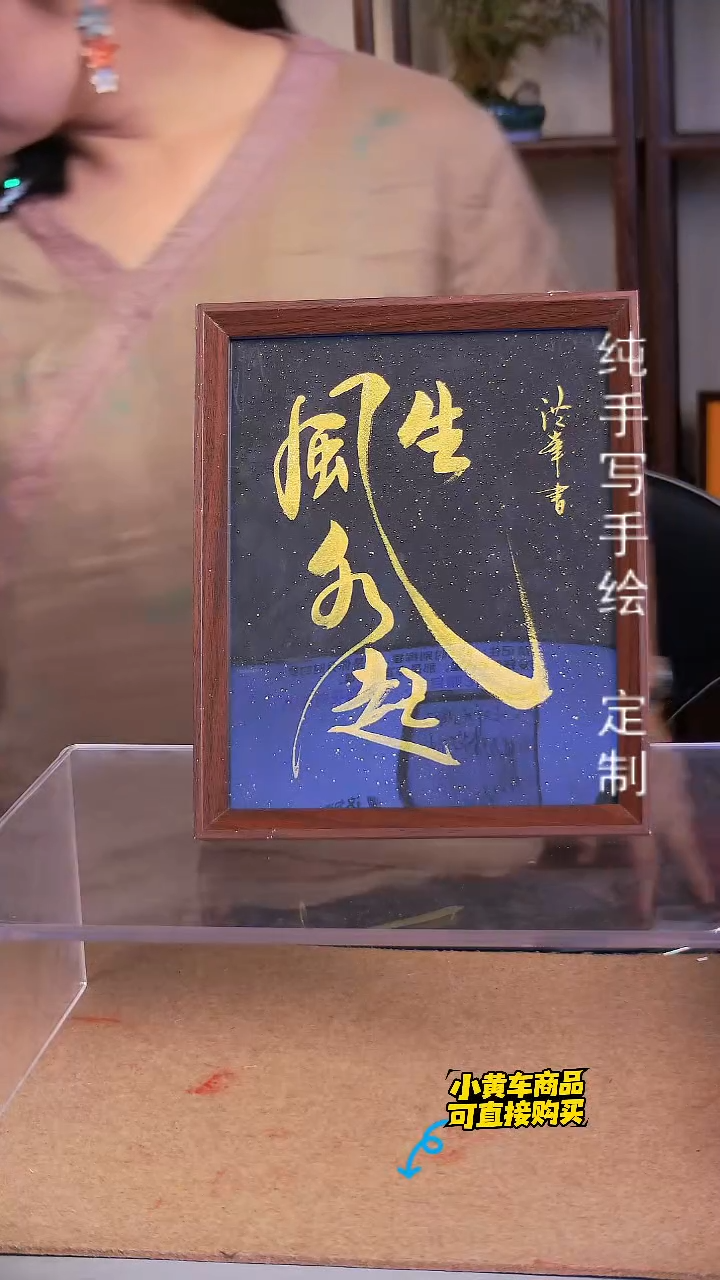 風生
水起
洪華書
纯手写手绘 定制
小黄车商品
可直接购买